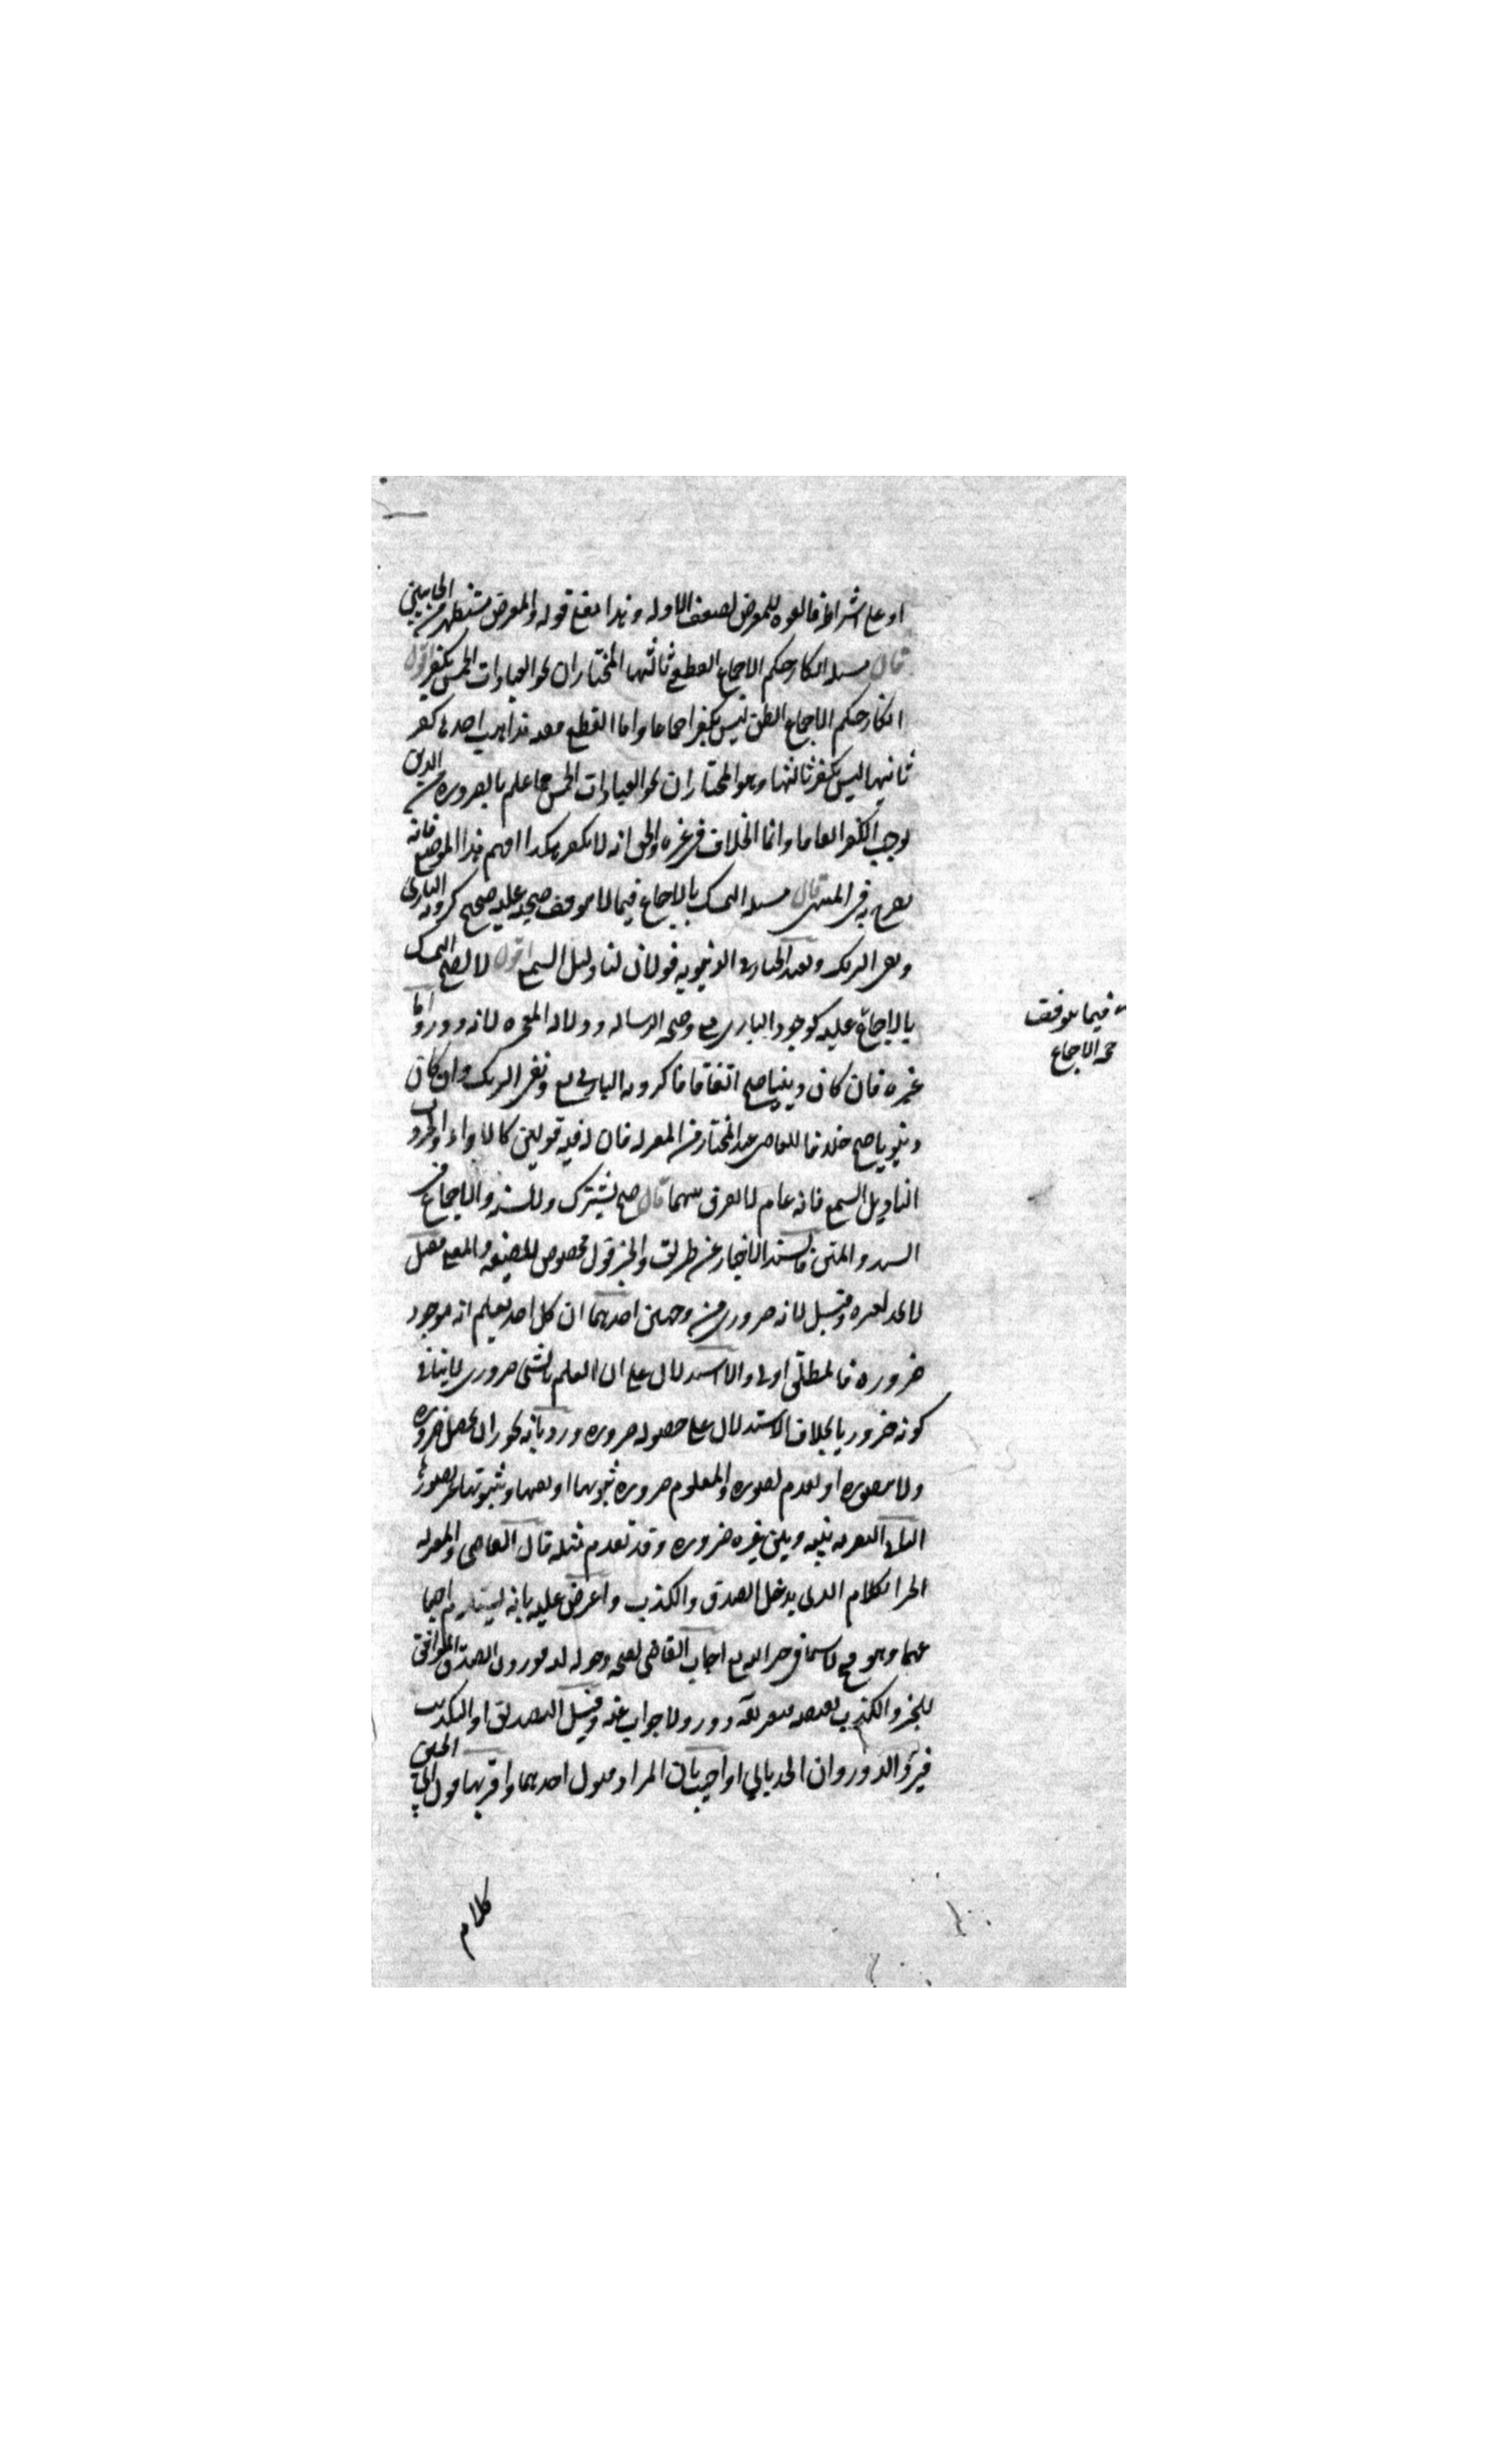 او على اشتراطه فالقوه للمعترض لضعف الادله وهذا معنى قوله والمعترض مستظهر من الجانبين
قال مسله انكار حكم الاجماع القطعي ثالثها المختار ان نحو العبادات الخمس يكفر اقول
انكار حكم الاجماع الظني ليس بكفر اجماعا واما القطعي ففيه مذاهب احدها كفر
ثانيها ليس بكفر ثالثها وهو المختار ان نحو العبادات الخمس مما علم بالضروره من الدين
يوجب الكفر اتفاقا وانما الخلاف في غيره والحق انه لا يكفر هكذا افهم هذا الموضع فانه
مصرح به في المنتهى قال مسله التمسك بالاجماع فيما لا يتوقف صحته عليه صحيح كرويه الباري
ونفي الشريك ولعبد الجبار في الدنيويه قولان لنا دليل السمع اقول لا يصح التمسك
بالاجماع عليه كوجود الباري تع وصحه الرساله ودلاله المعجزه لانه دور واما
فيما يتوقف
صحه الاجماع
غيره فان كان دينيا صح اتفاقا كرويه الباري تع ونفي الشريك وان كان
دنيويا صح خلافا للقاضي عبد الجبار من المعتزله فان له فيه قولين كالاراء والحروب
لنا دليل السمع فانه عام لا يفرق بينهما قال صح يشترك والسنه والاجماع في
السند والمتن فالسند الاخبار عن طريق والخبر قول مخصوص للصيغه والمعنى فقيل
لا يحد لعسره وقيل لانه ضروري من وجهين احدهما ان كل احد يعلم انه موجود
ضروره فالمطلق اولى والاستدلال على ان العلم بالشي ضروري لا ينافي
كونه ضروريا بخلاف الاستدلال على حصوله ضروره ورد بانه يجوز ان يحصل ضروره
ولا يتصوره او تقدم تصوره والمعلوم ضروره ثبوتها او نفيها وثبوتها غير تصورها
الثاني التفرقه بينه وبين غيره ضروره وقد تقدم مثله قال القاضي والمعتزله
الخبر الكلام الذي يدخله الصدق والكذب واعترض عليه بانه يستلزم اجتما
عهما وهو مح لا سيما في خبر الله تع اجاب القاضي بصحه دخوله لغه فورد ان الصدق الموافق
للخبر والكذب نقيضه فتعريفه به دور ولا جواب عنه وقيل التصديق او التكذيب
فيرد الدور وان الحد يابى او اجيب بان المراد قبول احدهما واقربها قول ابي الحسين
كلام